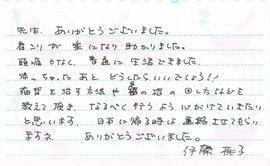 先生、ありがとうございました。
肩こりが楽になり助かりました。
頭痛もなく、普通に生活できました。
帰っちゃったあと、どうしたらいいでしょう!?
痛みを治す方法や 首の 回し方などを
教えて頂き、なるべく行うよう心がけていきたい
と思います。 日本に帰る時は 連絡させてもらい
ますネ。 ありがとうございました。
伊藤